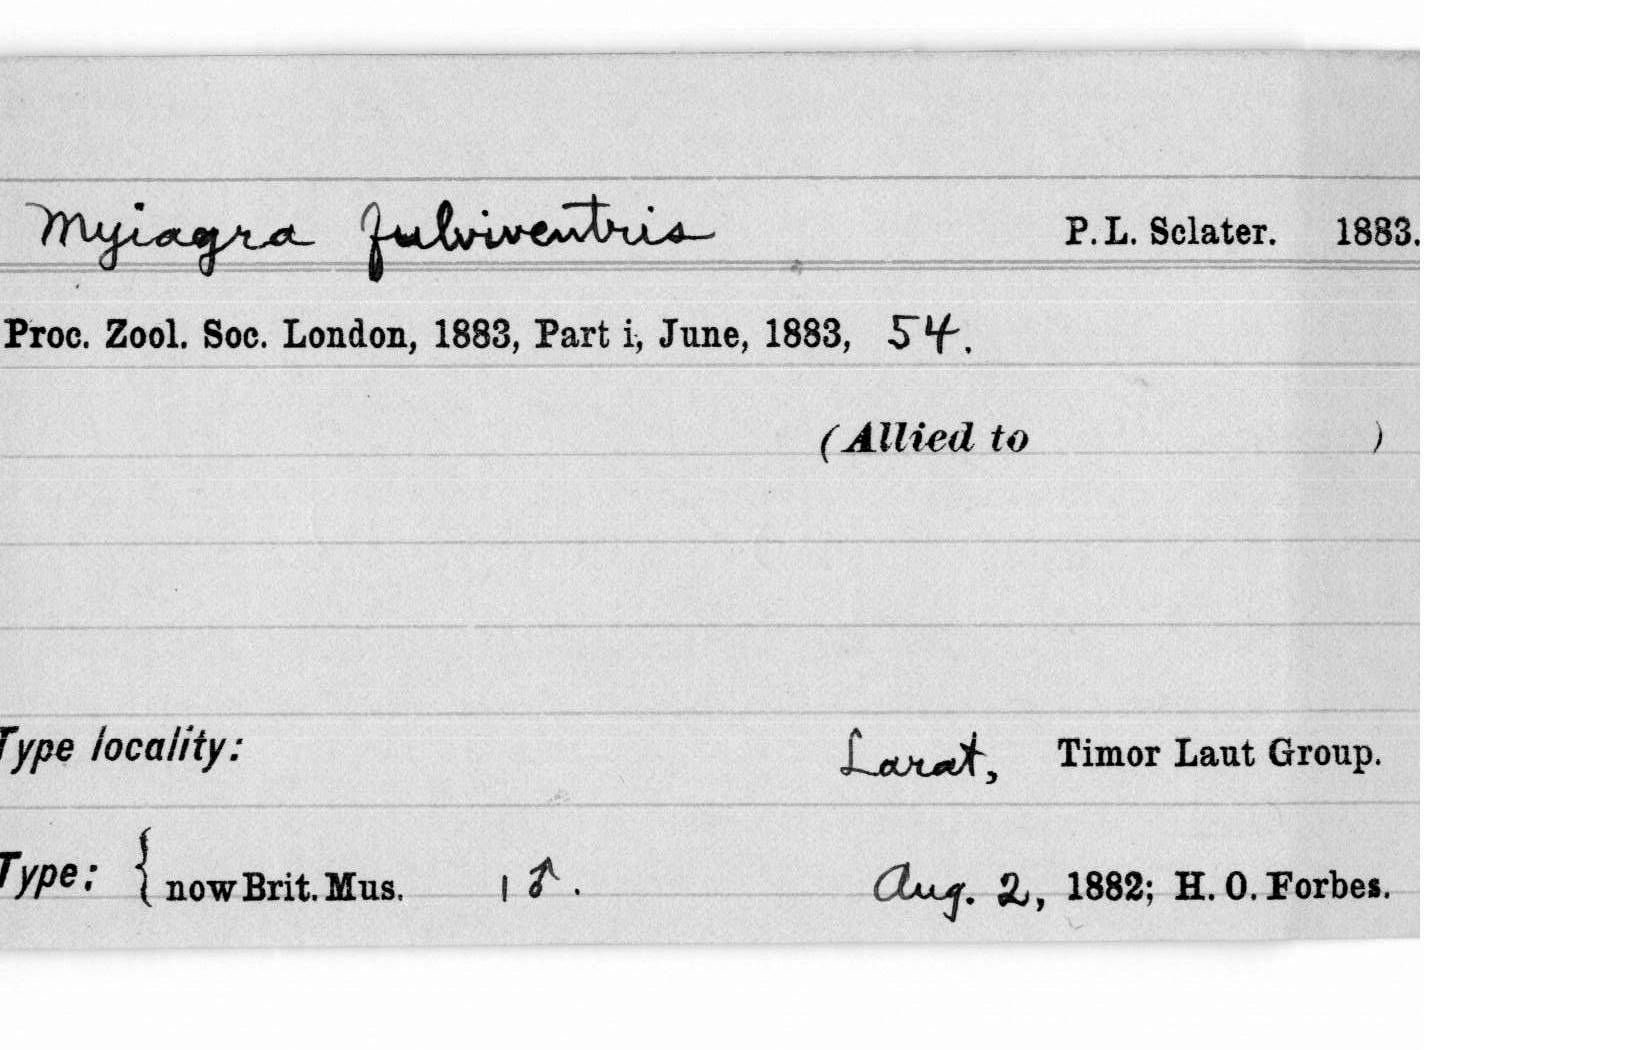 Myiagra fulviventris P. L. Sclater. 1883.
Proc. Zool. Soc. London, 1883, Part i, June, 1883, 54.
(Allied to )
Type locality: Larat, Timor Laut Group.
Type: { now Brit. Mus. 1 ♂. Aug. 2, 1882; H. O. Forbes.